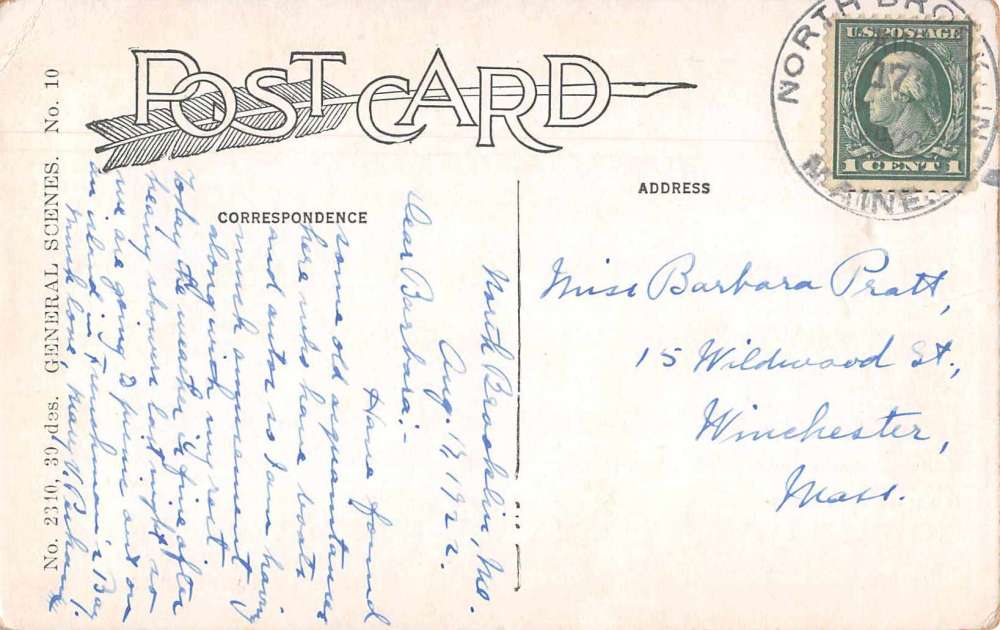 POST CARD
No. 2310, 30 des. GENERAL SCENES. No. 10
CORRESPONDENCE
ADDRESS
NORTH BROOKLIN
17
MAINE.
U.S. POSTAGE
1 CENT 1
North Brooklin, Me.
Aug. 17, 1922.
Dear Barbara:-
Have found
some old acquaintances
here who have boats
and autos so I am having
much amusement
along with my rest
Today the weather is fine after
heavy showers last night so
we are going to picnic out on
an island in Frenchman's Bay
Much love, Mary V.
Miss Barbara Pratt,
15 Wildwood St.,
Winchester,
Mass.